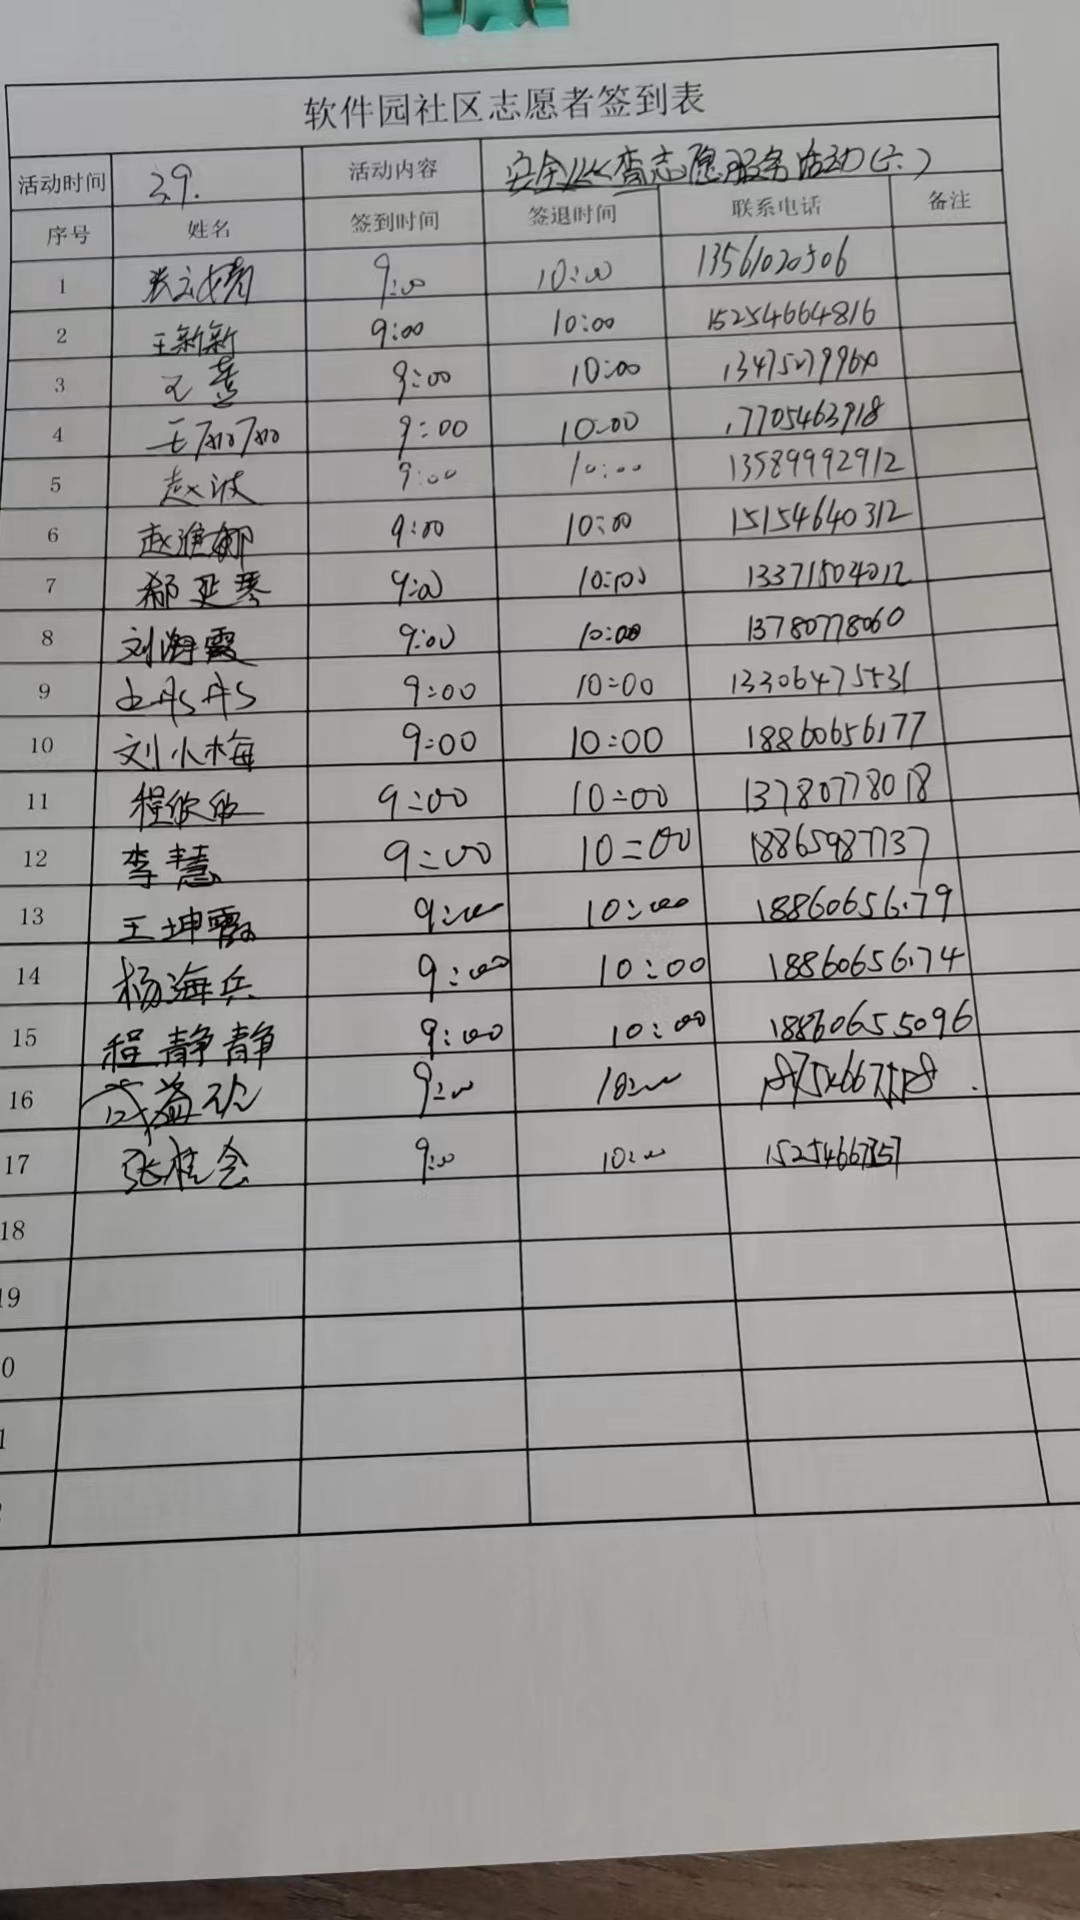 软件园社区志愿者签到表
活动时间 3.9. 活动内容 安全 查志愿服务活动(六)
序号 姓名 签到时间 签退时间 联系电话 备注
1 9:00 10:00 13561020506
2 王新新 9:00 10:00 15254664816
3 王 9:00 10:00
4 王 9:00 10:00 17705463918
5 赵波 9:00 10:00 13589992912
6 赵淮娜 9:00 10:00 15154640312
7 郗延琴 9:00 10:00 13371504012
8 刘海霞 9:00 10:00 13780778060
9 丹丹 9:00 10:00 13306475531
10 刘小梅 9:00 10:00 18860656177
11 程欣欣 9:00 10:00 13780778018
12 李慧 9:00 10:00 18865987737
13 王坤霞 9:00 10:00 18860656179
14 杨海兵 9:00 10:00 18860656174
15 程静静 9:00 10:00 18860655096
16 9:00 10:00
17 张桂会 9:00 10:00
18
19
0
1